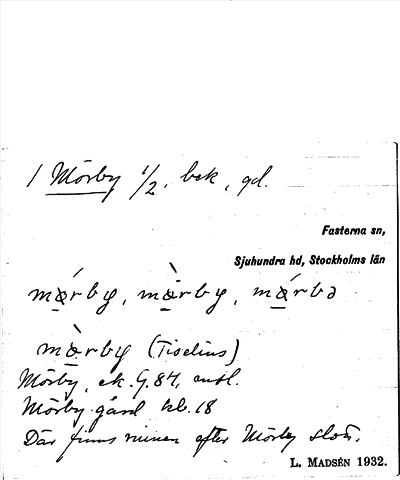 1 Mörby 1/2, bek, gd.
Fasterna sn,
Sjuhundra hd, Stockholms län
mǿrby, mø̀rby, mǿrbə
mø̀rby (Tiselius)
Mörby, ek. G. 87,
Mörby gård kb. 18
Där finns ruinen efter Mörby slott.
L. MADSÉN 1932.